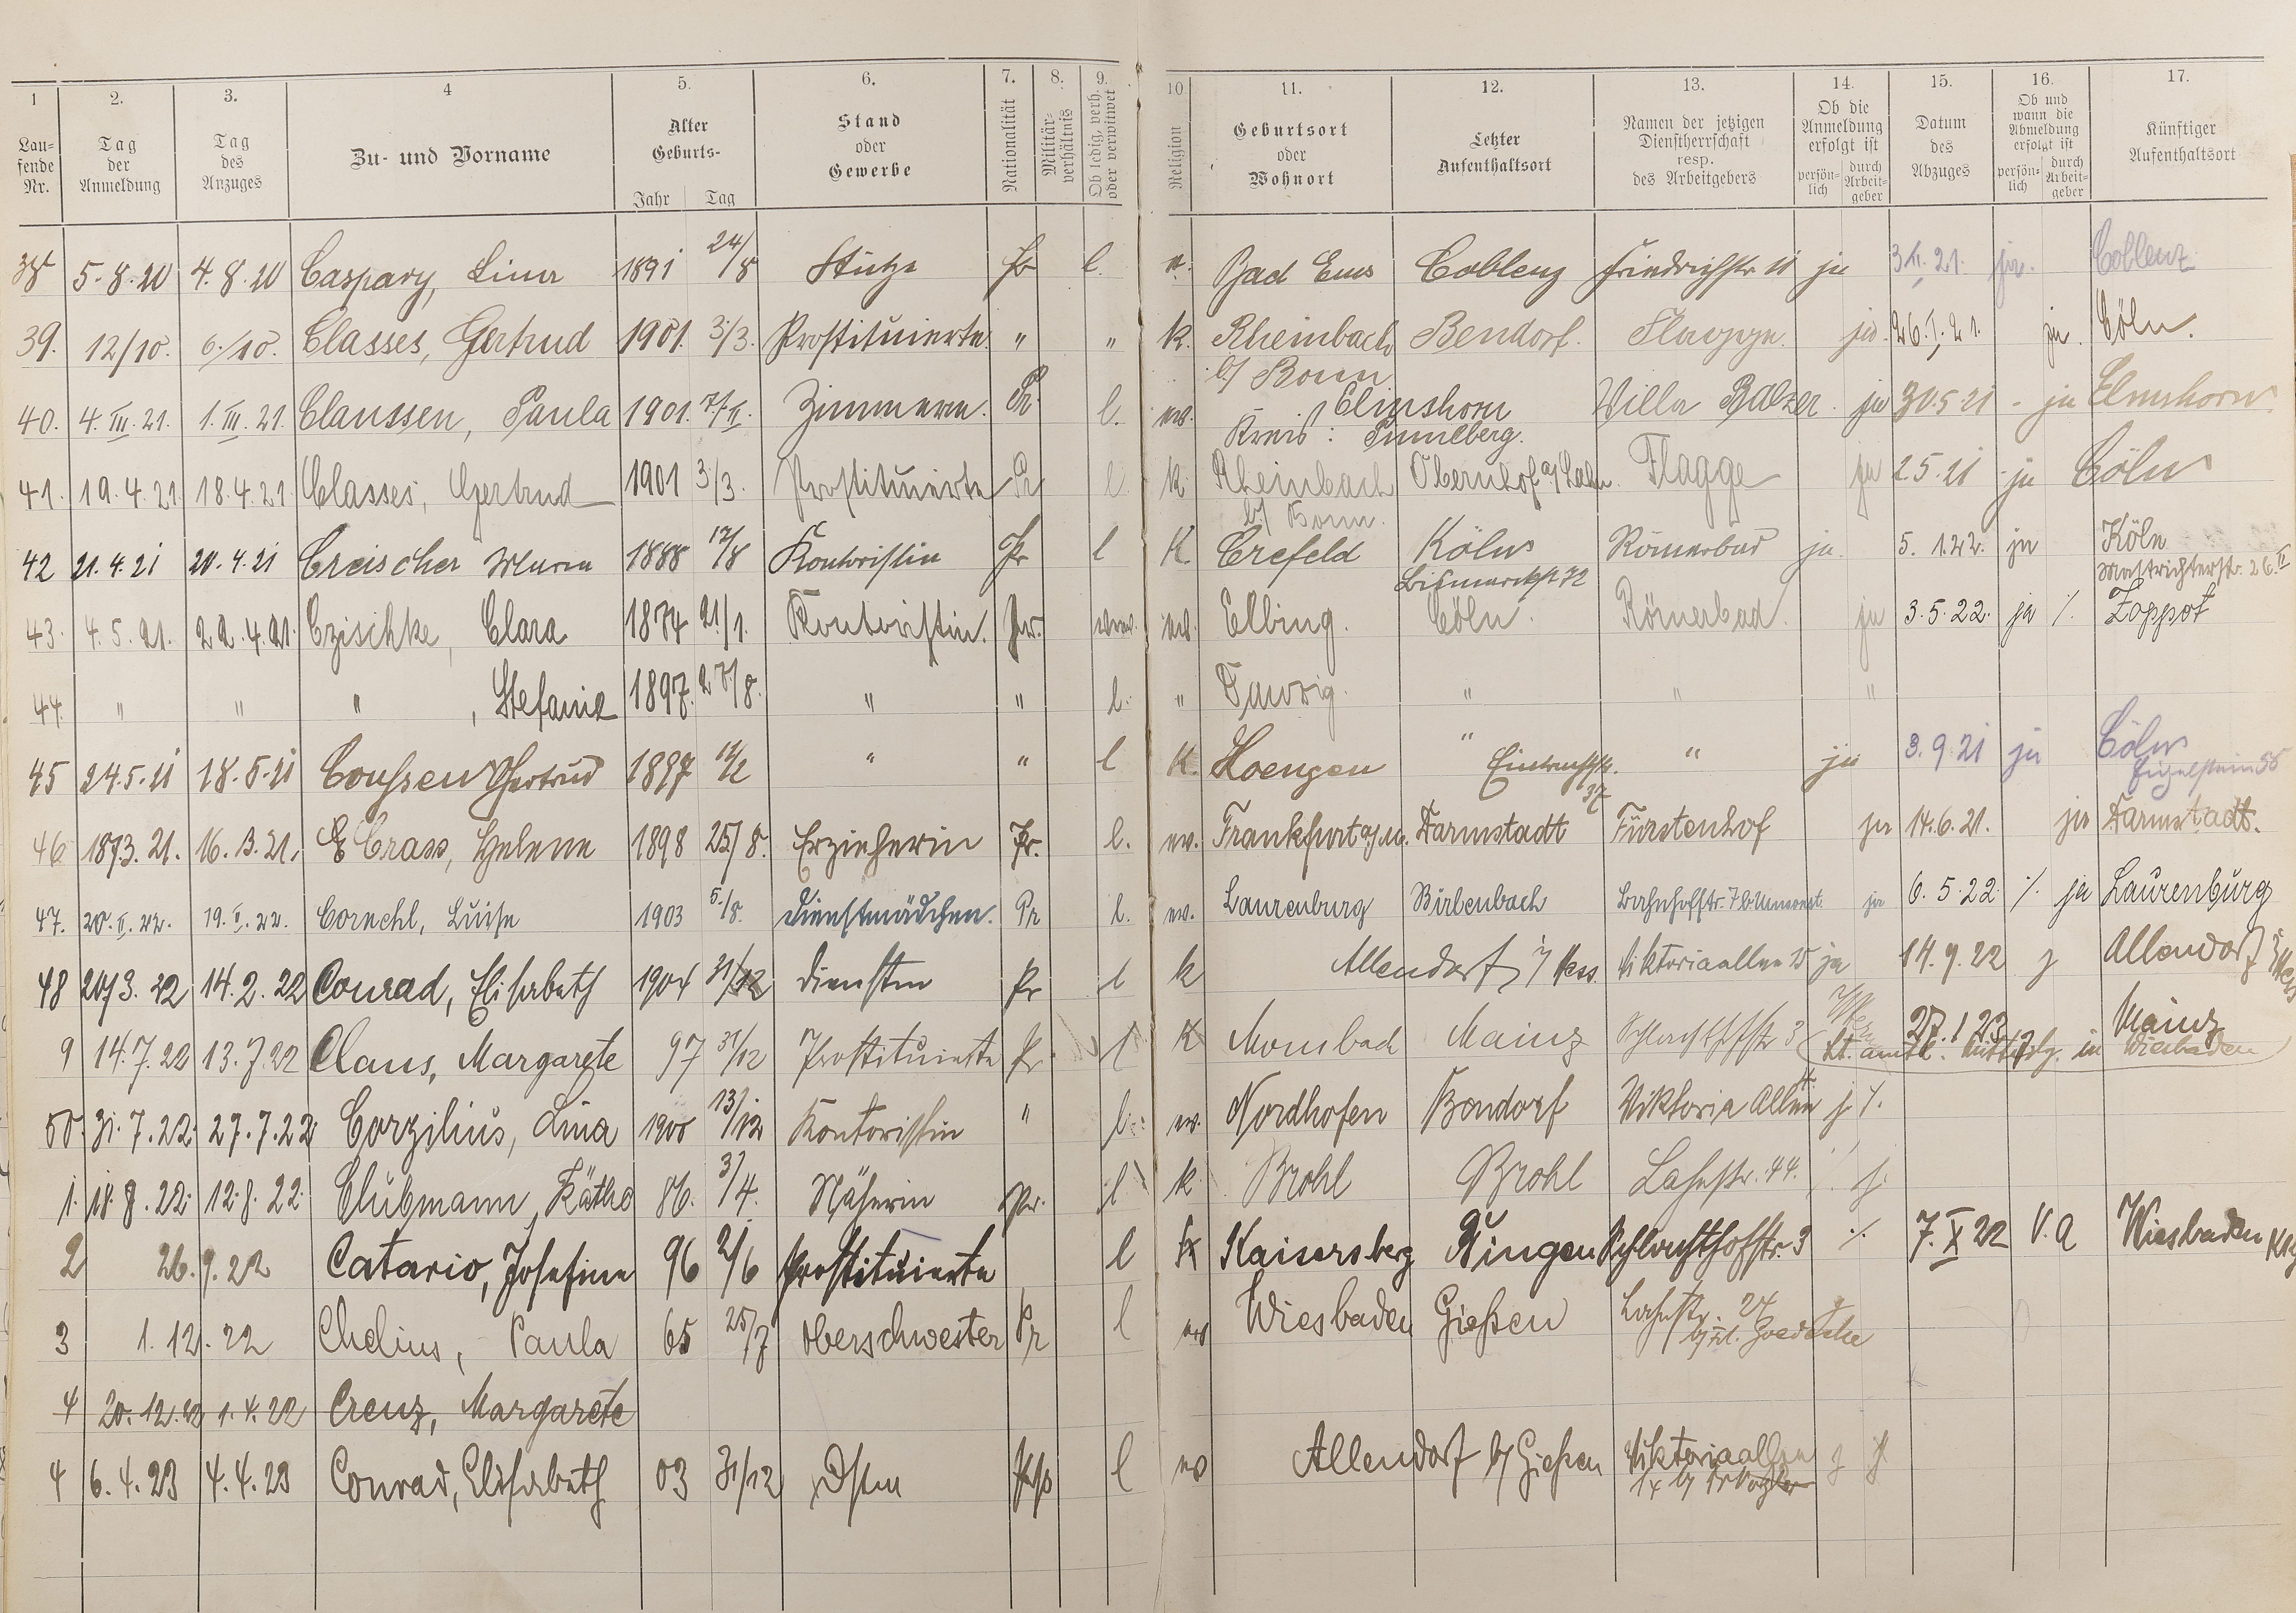 1 2. 3. 4 5. 6. 7. 8. 9. 10. 11. 12. 13. 14. 15. 16. 17.
Laufende Nr. | Tag der Anmeldung | Tag des Anzuges | Zu- und Vorname | Alter Geburts- Jahr Tag | Stand oder Gewerbe | Nationalität | Militärverhältnis | Ob ledig, verh. oder verwitwet | Religion | Geburtsort oder Wohnort | Letzter Aufenthaltsort | Namen der jetzigen Dienstherrschaft resp. des Arbeitgebers | Ob die Anmeldung erfolgt ist persönlich durch Arbeitgeber | Datum des Abzuges | Ob und wann die Abmeldung erfolgt ist persönlich durch Arbeitgeber | Künftiger Aufenthaltsort
38 5.8.20 4.8.20 Caspary, Lina 1891 24/8 Stütze Pr l. Bad Ems Coblenz Friedrichstr ja 21. ja. Coblenz
39. 12/10. 6./10. Classes, Gertrud 1901. 3/3. Prostituierte " " k. Rheinbach Bendorf. Flagge ja. 26.I.21. ja. Cöln.
b/ Bonn
40. 4.III.21. 1.III.21. Claussen, Paula 1901. 7/II. Zimmerm. Pr. l. ev. Elmshorn Villa Balzer ja 30.5.21 - ja Elmshorn
Kreis: Pinneberg.
41. 19.4.21 18.4.21. Classes, Gertrud 1901 3/3. Prostituierte Pr l k. Rheinbach Obernhof a/Lahn. Flagge ja 2.5.21 - ja Cöln
b/ Bonn.
42 21.4.21 20.4.21 Creischer Maria 1888 12/8 Kontoristin Pr l K. Crefeld Köln Römerbad ja. 5.1.22. ja Köln
Bismarckst 72 Mastrichterstr. 26.II
43. 4.5.21. 22.4.21. Czischke, Clara 1874 21/1. Kontoristin. Pr. verw. ev. Elbing. Cöln. Römerbad. ja 3.5.22. ja /. Zoppot
44. " " " , Stefanie 1897. 27/8. " " l. " Danzig. " " "
45 24.5.21 18.5.21 Coussen Gertrud 1897 " " l K. Hoengen " Eintrachtstr. 37 " ja 3.9.21 ja Cöln
Eigelstein 55
46. 1873.21. 16.3.21. Crass, Helene 1898 25/8. Erzieherin Pr. l. ev. Frankfurt a/M. Darmstadt Fürstenhof ja 14.6.21. ja Darmstadt.
47. 20.II.22. 19.II.22. Cornehl, Luise 1903 5./8. Dienstmädchen. Pr l. ev. Laurenburg Birlenbach ja 6.5.22. /. ja Laurenburg
48 20/3.22 14.2.22 Conrad, Elisabeth 1904 31/12 Dienstm Pr l k Allendorf Viktoriaallee 15 ja 14.9.22 j Allendorf
9 14.7.22 13.7.22 Claus, Margarete 97 31/12 Prostituierte Pr. l k Mombach Mainz Schlachthofstr 3 27.1.23 Mainz
(Lt. amtl. Mittlg. in Wiesbaden)
50. 31.7.22. 27.7.22 Corzilius, Lina 1900 13/12 Kontoristin " l. ev. Nordhofen Bendorf Viktoria Allee j /.
1. 18.8.22. 12.8.22. Clubmann, Käthe 86. 3/4. Näherin Pr. l k Brohl Brohl Lahnstr. 44. /. j.
2 26.9.22 Catario, Josefine 96 2/6 Prostituierte l k Kaisersberg Bingen Schlachthofstr. 3 /. 7.X.22 V.A Wiesbaden
3 1.12.22 Chelius, Paula 65 25/7 Oberschwester Pr l ev Wiesbaden Gießen Lahnstr. 27
4 20.12.22 1.4.22 Creuz, Margarete
4 6.4.23 4.4.23 Conrad, Elisabeth 03 31/12 Dstm l ev Allendorf b/ Gießen Viktoriaallee j